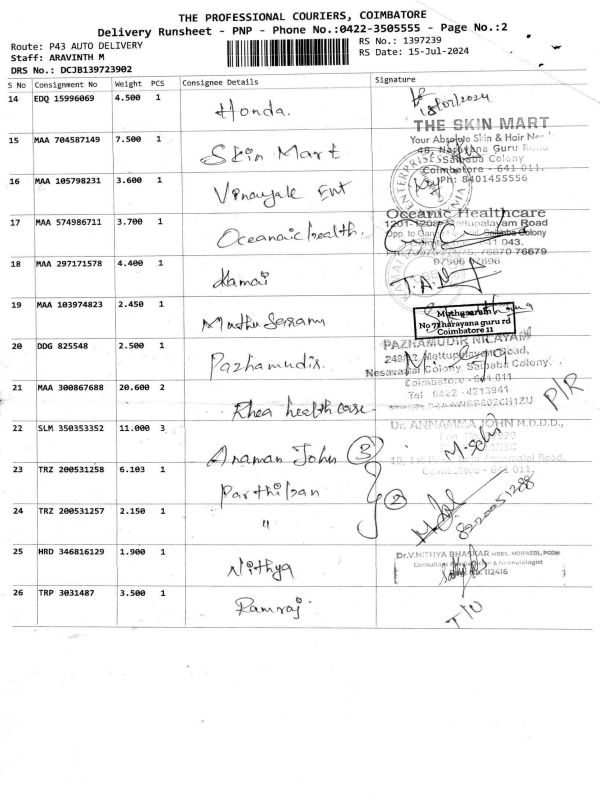 THE PROFESSIONAL COURIERS, COIMBATORE
Delivery Runsheet - PNP - Phone No.:0422-3505555 - Page No.:2
Route: P43 AUTO DELIVERY
RS No.: 1397239
Staff: ARAVINTH M
RS Date: 15-Jul-2024
DRS No.: DCJB139723902
S No Consignment No Weight PCS Consignee Details Signature
14 EDQ 15996069 4.500 1 Honda.
18/07/2024
THE SKIN MART
Your Absolute Skin & Hair
48, Narayana Guru Road
Saibaba Colony
Coimbatore - 641 011.
Ph: 8401455556
15 MAA 704587149 7.500 1 Skin Mart
16 MAA 105798231 3.600 1 Vinayak Ent
ENTERPRISE
Oceanic Healthcare
Mettupalayam Road
17 MAA 574986711 3.700 1 Oceanaic health.
18 MAA 297171578 4.400 1 Kamai
19 MAA 103974823 2.450 1
Muthusaram
No 71 narayana guru rd
Coimbatore 11
20 DDG 825548 2.500 1 Pazhamudir.
PAZHAMUDIR NILAYAM
Mettupalayam Road,
Saibaba Colony
Coimbatore - 641 011
Tel 0422 - 4213941
21 MAA 300867688 20.600 2 Rhea health care
P/R
22 SLM 350353352 11.000 3 Anaman John 3
Dr. ANNAMMA JOHN M.D.D.D.,
Road,
Coimbatore - 641 011.
23 TRZ 200531258 6.103 1 Parthiban
2
24 TRZ 200531257 2.150 1 "
25 HRD 346816129 1.900 1 Nithya
Dr.V.NITHYA BHASKAR MBBS, MD(PAED), PGDN
Consultant & Neonatologist
112416
26 TRP 3031487 3.500 1 Ramraj